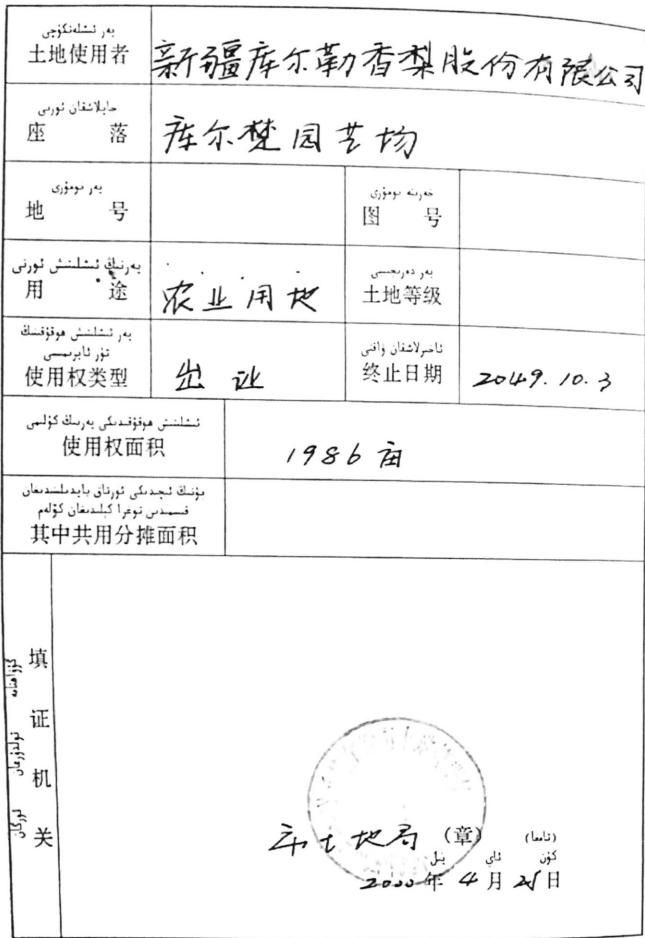 يەر ئىشلەتكۈچى
土地使用者 新疆库尔勒香梨股份有限公司
جايلاشقان ئورنى
座 落 库尔楚园艺场
يەر نومۇرى
地 号
خەرىتە نومۇرى
图 号
يەرنىڭ ئىشلىتىش ئورنى
用 途 农业用地
يەر دەرىجىسى
土地等级
يەر ئىشلىتىش هوقۇقىنىڭ
تۈر ئايرىمىسى
使用权类型 出让
ئاخىرلاشقان ۋاقتى
终止日期 2049.10.3
ئىشلىتىش هوقۇقىدىكى يەرنىڭ كۆلىمى
使用权面积 1986亩
其中共用分摊面积
填证机关
市土地局 (章) (تامغا)
يىل ئاي كۈن
2000年4月25日